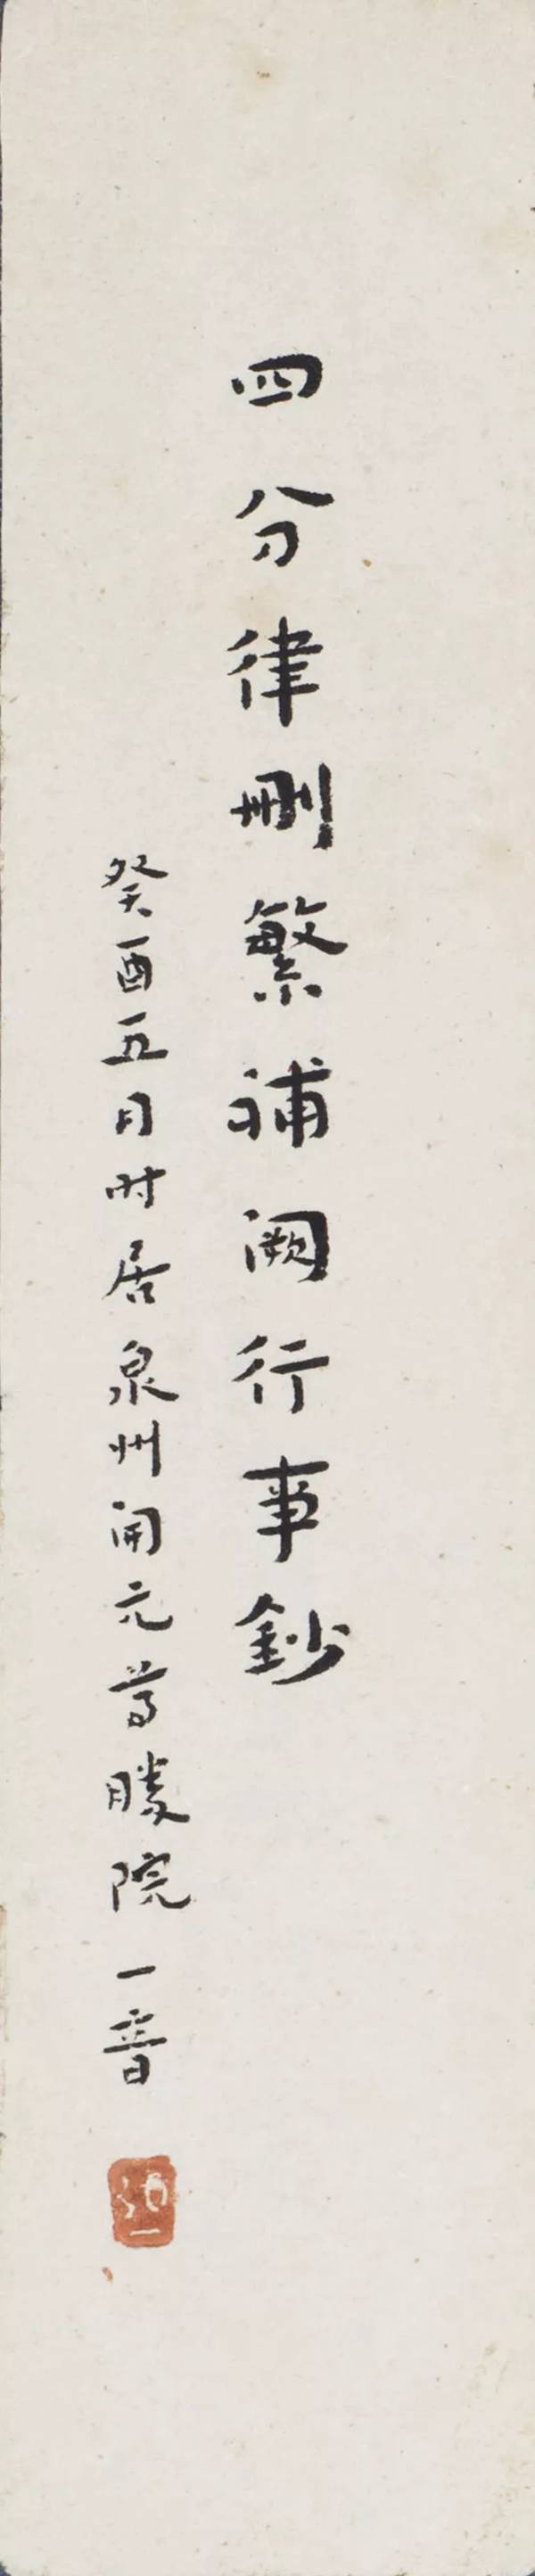 四分律刪繁補闕行事鈔
癸酉五月时居泉州開元尊勝院 一音